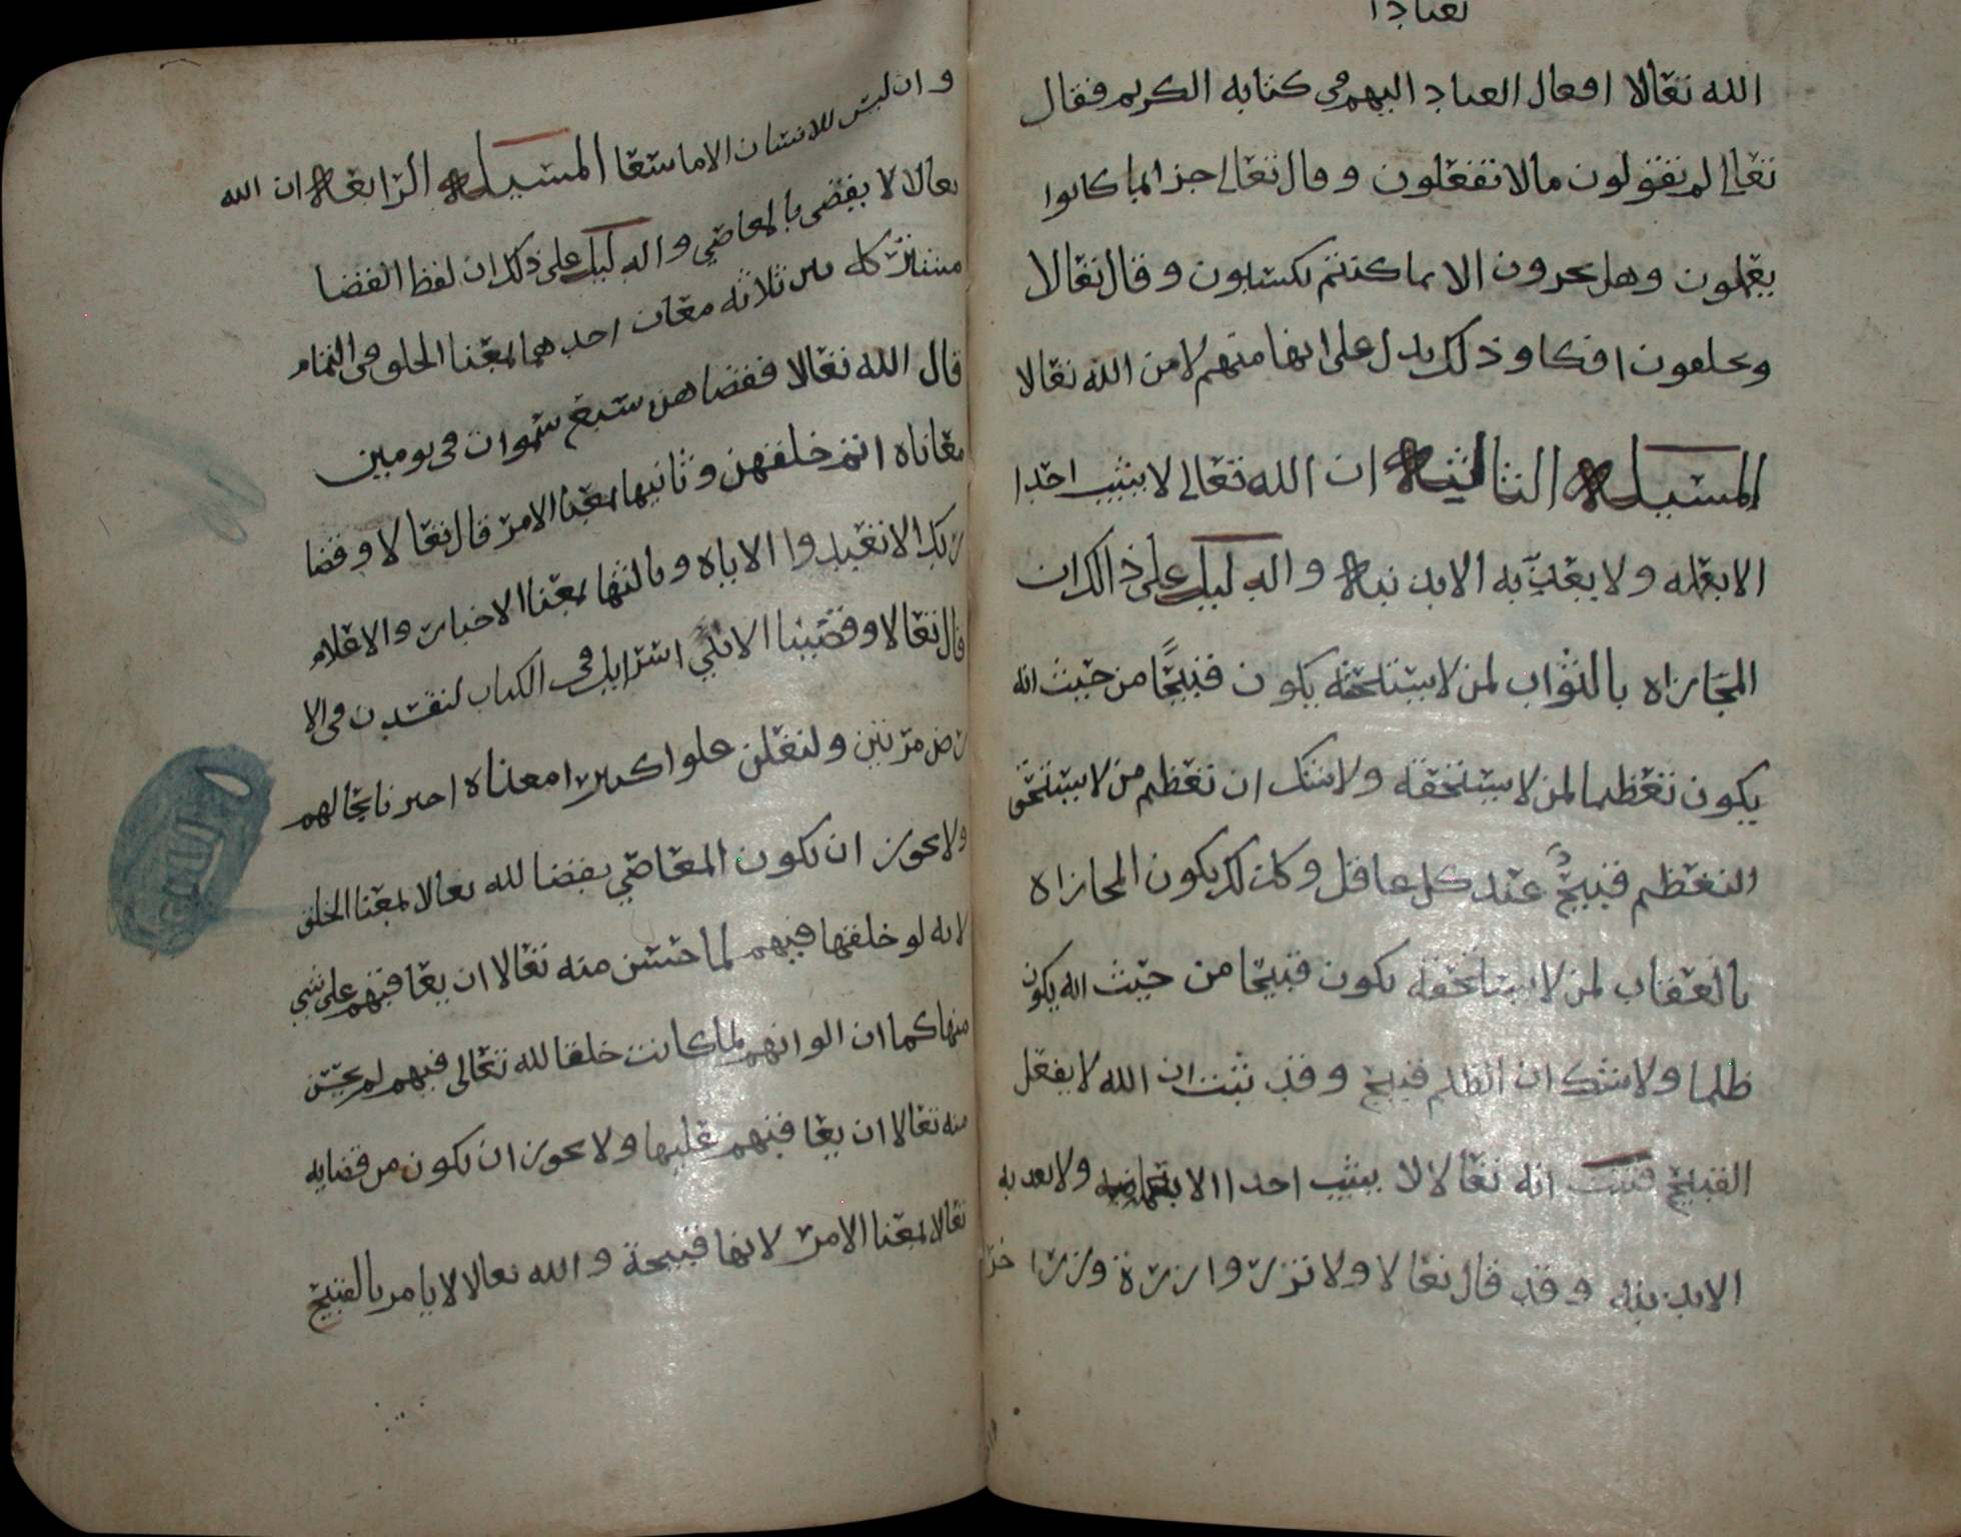 الله تعالا افعال العباد اليهم في كتابه الكريم فقال
تعالى لم تقولون مالا تفعلون وقال تعالى جزا بما كانوا
يعملون وهل يجزون الا بما كنتم تكسبون وقال تعالا
وتخلقون افكا وذلك يدل على انها منهم لا من الله تعالا
المسيلة الثالثة ان الله تعالى لا يثيب احدا
الا بعمله ولا يعذبه الا بذنبه والدليل على ذالك ان
المجازاه بالثواب لمن لا يستحقه يكون قبيحًا من حيث انه
يكون تعظيما لمن لا يستحقه ولا شك ان تعظيم من لا يستحق
التعظيم قبيحٌ عند كل عاقل وكذلك يكون المجازاه
بالعقاب لمن لا يستحقه يكون قبيحا من حيث انه يكون
ظلما ولا شك ان الظلم قبيح وقد ثبت ان الله لا يفعل
القبيح فثبت انه تعالا لا يثيب احدا الا بعمله ولا يعذبه
الا بذنبه وقد قال تعالا ولا تزر وازرة وزرا
وان ليس للانسان الا ما سعا المسيلة الرابعة ان الله
تعالا لا يقضي بالمعاصي والدليل على ذلك ان لفظ القضا
مشتركه بين ثلاثه معان احدهما بمعنا الخلق في التمام
قال الله تعالا فقضاهن سبع سموات في يومين
معاناه اتم خلقهن وثانيها بمعنا الامر قال تعالا وقضا
ربك الا تعبدوا الا اياه وثالثها بمعنا الاخبار والاعلام
قال تعالا وقضينا الا بني اسرايل في الكتاب لتفسدن في الا
رض مرتين ولتعلن علوا كبيرا معناه اخبرنا بحالهم
ولا يجوز ان تكون المعاصي بقضا لله تعالا بمعنا الخلق
لانه لو خلقها فيهم لما حسن منه تعالا ان يعاقبهم على شي
منها كما ان الوانهم لما كانت خلقا لله تعالى فيهم لم يحسن
منه تعالا ان يعاقبهم عليها ولا يجوز ان تكون من قضايه
تعالا بمعنا الامر لانها قبيحة والله تعالا لا يامر بالقبيح